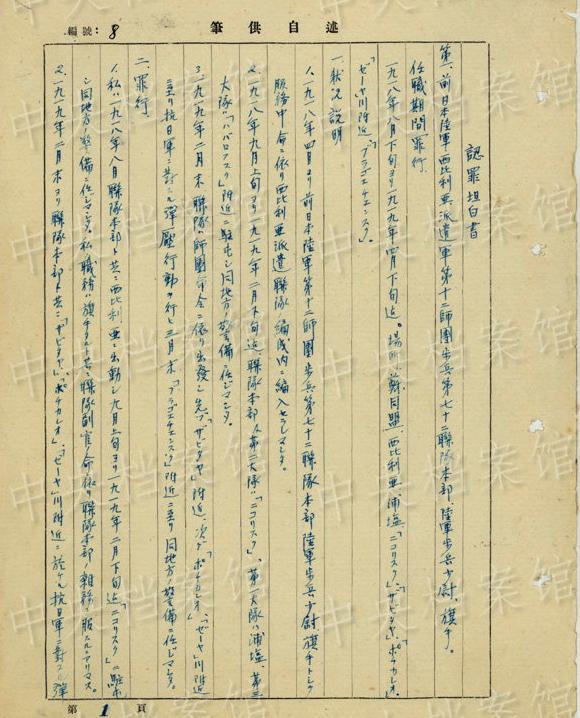 述自供筆
編號：8
認罪坦白書
第一、前日本陸軍西比利亜派遣軍第十二師團歩兵第七十二聯隊本部、陸軍歩兵少尉、旗手。
任職期間罪行、
一九一八年八月下旬ヨリ一九一九年四月下旬迠。場所、蘇同盟、西比利亜、浦塩、「ニコリスク」、「ザビタヤ」、「ポチカレオ」、
「ゼーヤ」川附近、「ブラゴエチエンスク」。
一、狀況説明
1、一九一八年四月ヨリ前日本陸軍第十二師團歩兵第七十二聯隊本部陸軍歩兵少尉旗手トシテ
服務中、命ニ依リ西比利亜派遣聯隊ノ編成内ニ編入セラレマシタ。
2、一九一八年九月上旬ヨリ一九一九年二月下旬迠聯隊本部及第二大隊ハ「ニコリスク」、第一大隊ハ浦塩、第三
大隊ハ「ハバロフスク」附近ニ駐屯シ同地方ノ警備ニ任ジマシタ。
3、一九一九年二月末聯隊ハ師團命令ニ依リ出發シ先ヅ「ザビタヤ」附近、次デ「ポチカレオ」、「ゼーヤ」川附近
ニ至リ抗日軍ニ對スル彈壓行動ヲ行ヒ三月末「ブラゴエチエンスク」附近ニ至リ同地方ノ警備ニ任ジマシタ。
二、罪行、
1、私ハ一九一八年八月聯隊本部ト共ニ西比利亜ニ出動シ九月上旬ヨリ一九一九年二月下旬迠「ニコリスク」ニ駐屯
シ同地方ノ警備ニ任ジマシタ。私ノ職務ハ旗手タルト共ニ聯隊副官ノ命ニ依リ聯隊本部ノ雜務ニ服シタノデアリマス。
2、一九一九年二月末ヨリ聯隊本部ト共ニ「ザビタヤ」、「ポチカレオ」、「ゼーヤ」川附近ニ於ケル抗日軍ニ對スル彈
第1頁
中央档案馆